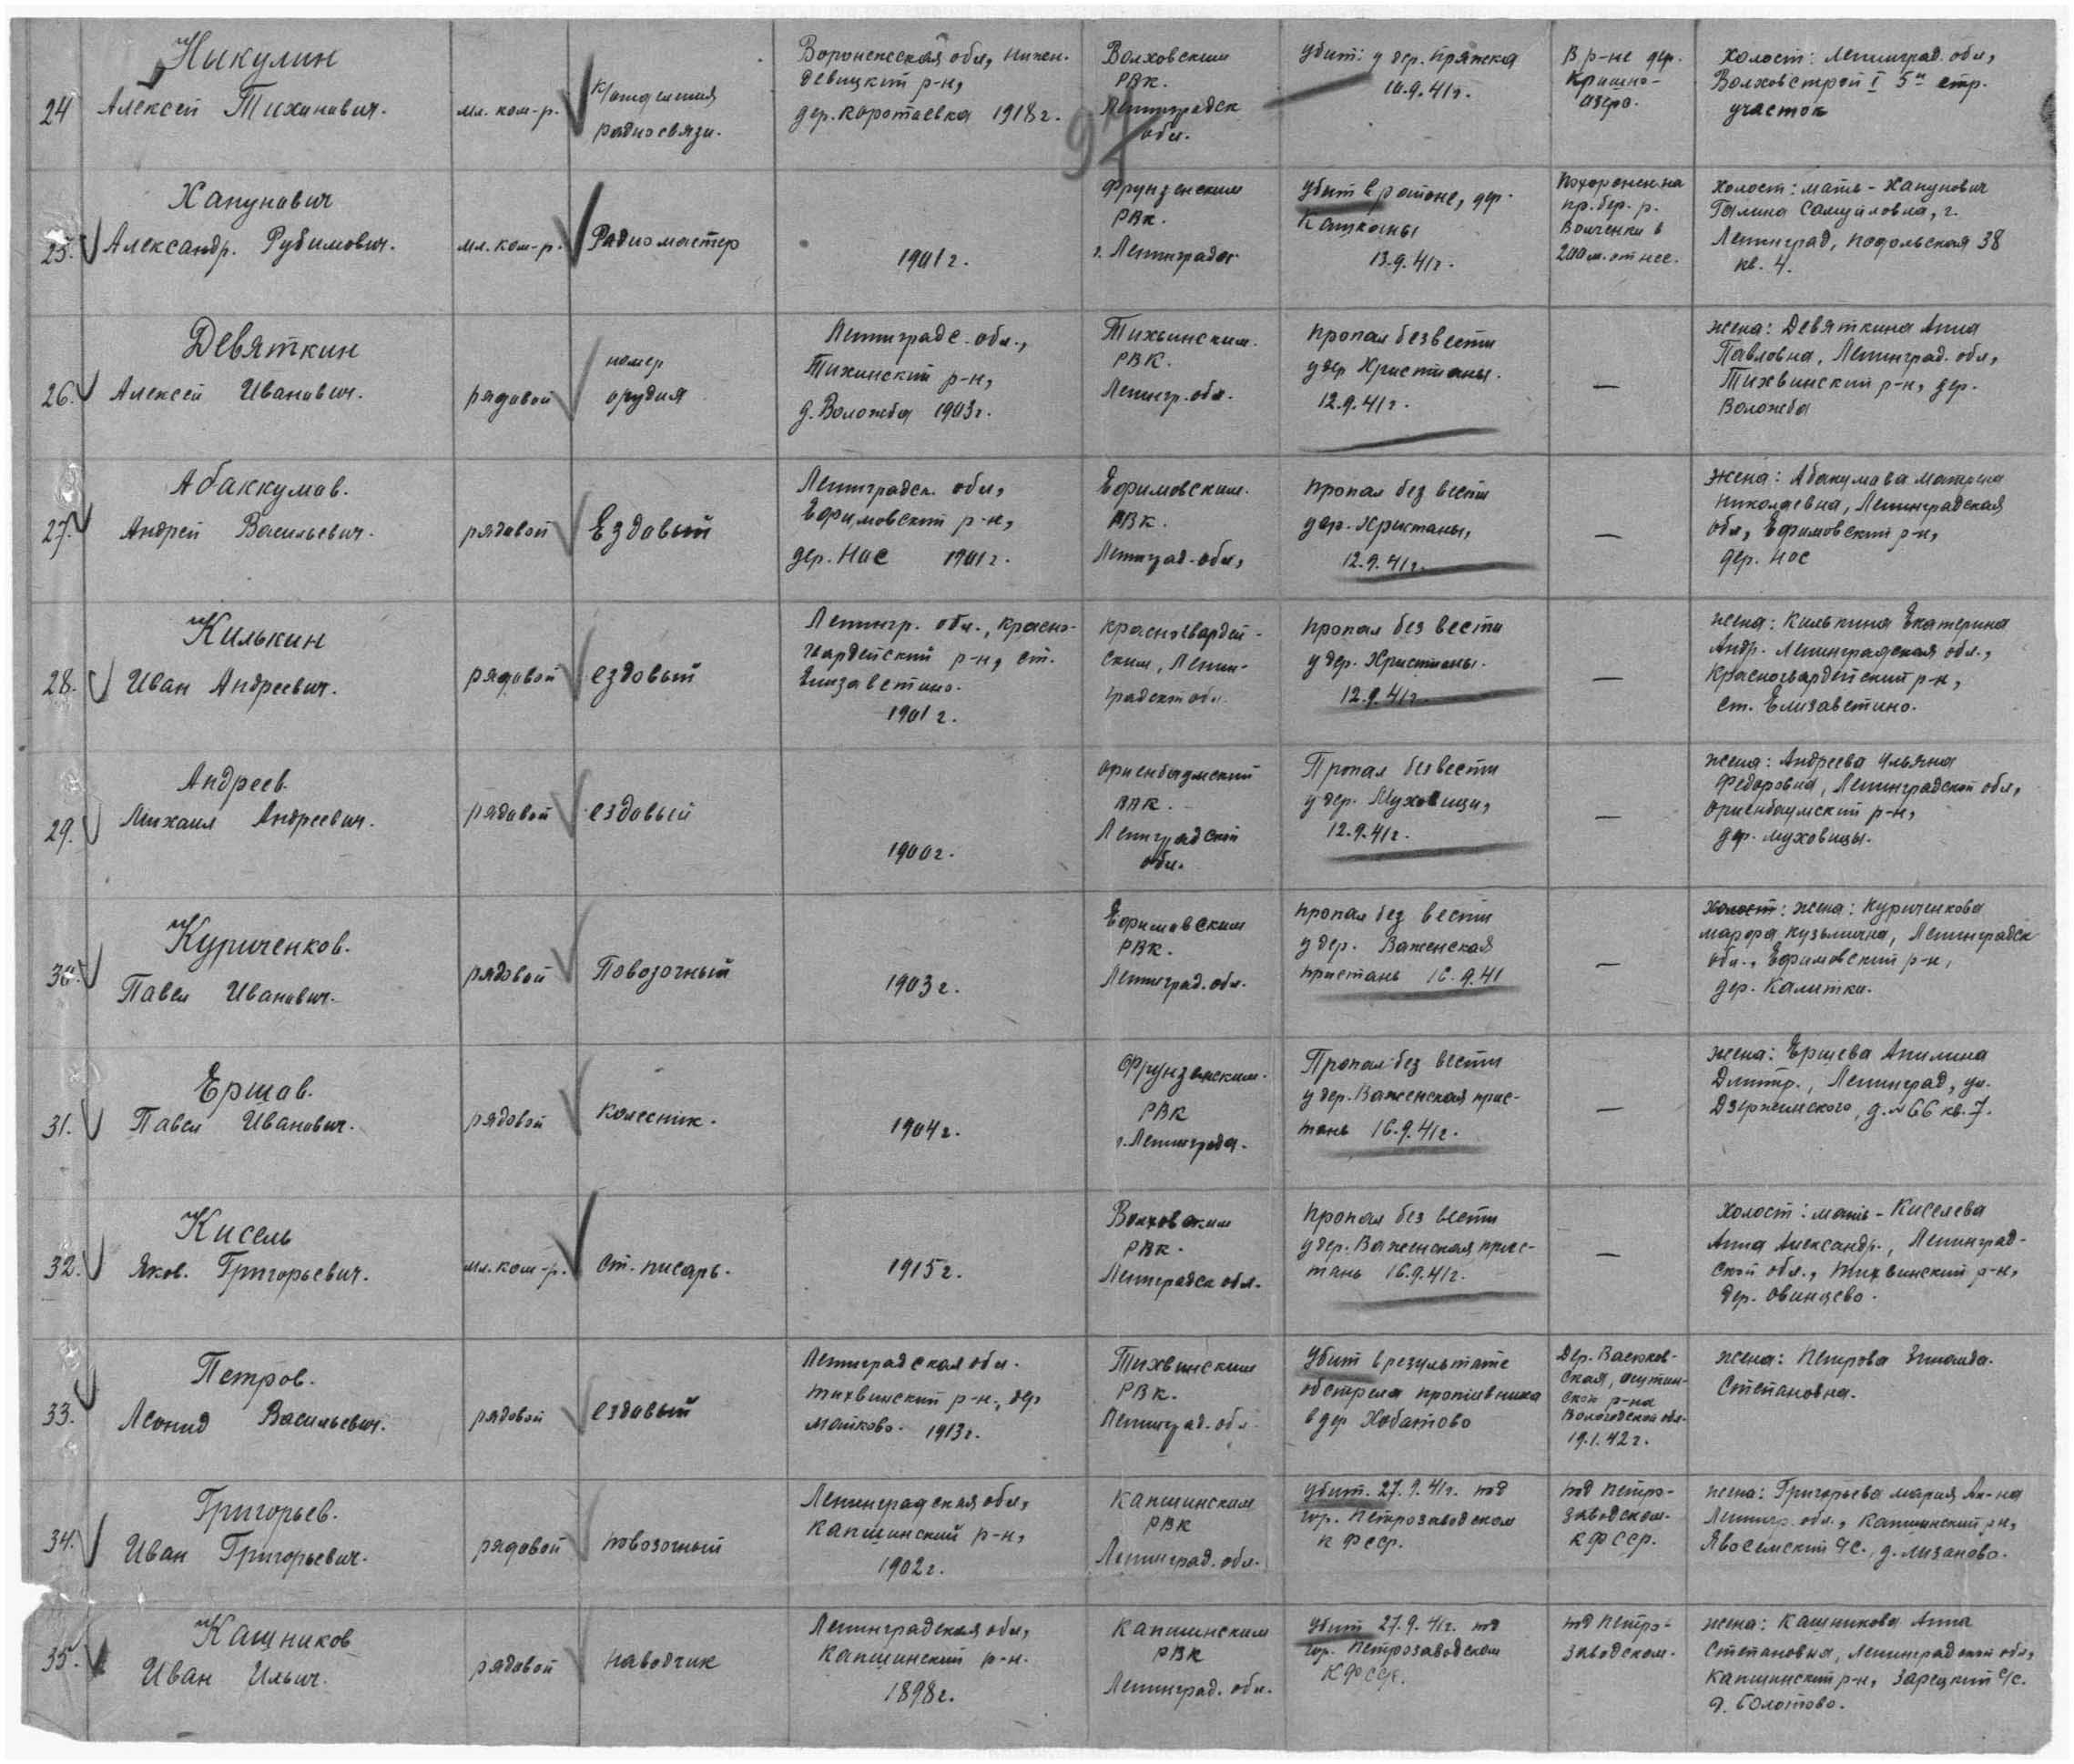 24
Никулин
Алексей Тиханович.
мл. ком-р.
К/отделения
радиосвязи.
Воронежская обл, Нижен.
девицкий р-н,
дер. Коротаевка 1918г.
Волховским
РВК.
Ленинградск
обл.
97
Убит: у дер. Пряжка
10.9.41г.
В р-не дер.
озеро.
Холост: Ленинград. обл,
Волховстрой I 5й стр.
участок
25.
Хапунович
Александр. Рубимович.
мл. ком-р.
Радиомастер
1901г.
Фрунзенским
РВК.
г. Ленинграда
Убит в районе, дер.
Кашканы
13.9.41г.
Похоронен на
пр. бер. р.
в
200 м. от нее.
Холост: мать - Хапунович
Галина Самуиловна, г.
Ленинград, Подольская 38
кв. 4.
26.
Девяткин
Алексей Иванович.
рядовой
номер
орудия
Ленинградс. обл.,
Тихинский р-н,
д. Воложба 1903г.
Тихвинским.
РВК.
Ленингр. обл.
Пропал безвести
у дер Христианы.
12.9.41г.
—
жена: Девяткина Анна
Павловна, Ленинград. обл,
Тихвинский р-н, дер.
Воложба
27.
Абаккумов.
Андрей Васильевич.
рядовой
Ездовый
Ленинградск. обл,
Ефимовский р-н,
дер. Нос 1901г.
Ефимовским.
РВК.
Ленинград. обл,
Пропал без вести
дер. Христаны,
12.9.41г.
—
жена: Абакумова Матрена
Николаевна, Ленинградская
обл, Ефимовский р-н,
дер. Нос
28.
Килькин
Иван Андреевич.
рядовой
ездовый
Ленингр. обл., Красно-
гвардейский р-н, ст.
Елизаветино.
1901г.
Красногвардей-
ским, Ленин-
градской обл
Пропал без вести
у дер. Христианы.
12.9.41г.
—
жена: Килькина Екатерина
Андр. Ленинградская обл.,
Красногвардейский р-н,
ст. Елизаветино.
29.
Андреев.
Михаил Андреевич.
рядовой
ездовый
1900г.
Ориенбаумский
РВК.
Ленинградской
обл.
Пропал безвести
у дер. Муховици,
12.9.41г.
—
жена: Андреева Ульяна
Федоровна, Ленинградской обл,
Ориенбаумский р-н,
дер. Муховицы.
30.
Куриченков.
Павел Иванович.
рядовой
Повозочный
1903г.
Ефимовским
РВК.
Ленинград. обл.
Пропал без вести
у дер. Важенская
пристань 16.9.41
—
холост: жена: Куриченкова
Кузьминна, Ленинградск
обл., Ефимовский р-н,
дер. Калитки.
31.
Ершов.
Павел Иванович.
рядовой
Колесник.
1904г.
Фрунзенским.
РВК
г. Ленинграда.
Пропал без вести
у дер. Важенская прис-
тань 16.9.41г.
—
жена: Ершева Апилина
Дмитр., Ленинград, ул.
Дзержинского, д. №66 кв. 7.
32.
Кисель
Яков. Григорьевич.
мл. ком-р.
Ст. писарь.
1915г.
Волховским
РВК.
Ленинградск обл.
Пропал без вести
у дер. Важенская прис-
тань 16.9.41г.
—
Холост: мать - Киселева
Анна Александр., Ленинград-
ской обл., Тихвинский р-н,
дер. Овинцево.
33.
Петров.
Леонид Васильевич.
рядовой
ездовый
Ленинградская обл.
Тихвинский р-н., дер
Мошково. 1913г.
Тихвинским
РВК.
Ленинград. обл
Убит в результате
обстрела противника
в дер Хобатово
Дер.
р-на
Вологодской обл.
19.1.42г.
жена: Петрова
Степановна.
34.
Григорьев.
Иван Григорьевич.
рядовой
повозочный
Ленинградская обл,
Капшинский р-н,
1902г.
Капшинским
РВК
Ленинград. обл.
Убит. 27.9.41г. под
гор. Петрозаводском
К Фсср.
под Петро-
заводском.
КФССР.
жена: Григорьева Мария Ан-на
Ленингр. обл., Капшинский р-н,
Явосемский с/с., д. Лизаново.
35.
Кашников
Иван Ильич.
рядовой
наводчик
Ленинградская обл,
Капшинский р-н.
1898г.
Капшинским
РВК
Ленинград. обл.
Убит 27.9.41г. под
гор. Петрозаводском
КФсср.
под Петро-
заводском.
жена: Кашникова Анна
Степановна, Ленинградской обл,
Капшинский р-н, Зарецкий с/с.
д. Болотово.